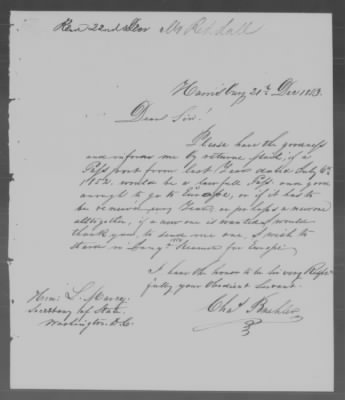 Rec 22nd Dec Mr
Harrisburg 21st Dec 1853.
Dear Sir!
Please have the goodness
and inform me by return mail, if a
Pass port from last Year dated July 6th
1852, would be a lawfull Pass, and good
enough to go to Europe, or if it has to
be renewed every Year, or perhaps a new one
alltogether, if a new one is wanted I would
thank you, to send me one, I wish to
start in Jany Steamer for Europe.
I have the honor to be Sir very Respect
fully your Obedient Servant
Chas
Hon: L. Marcy
Secretary of State
Washington D.C.